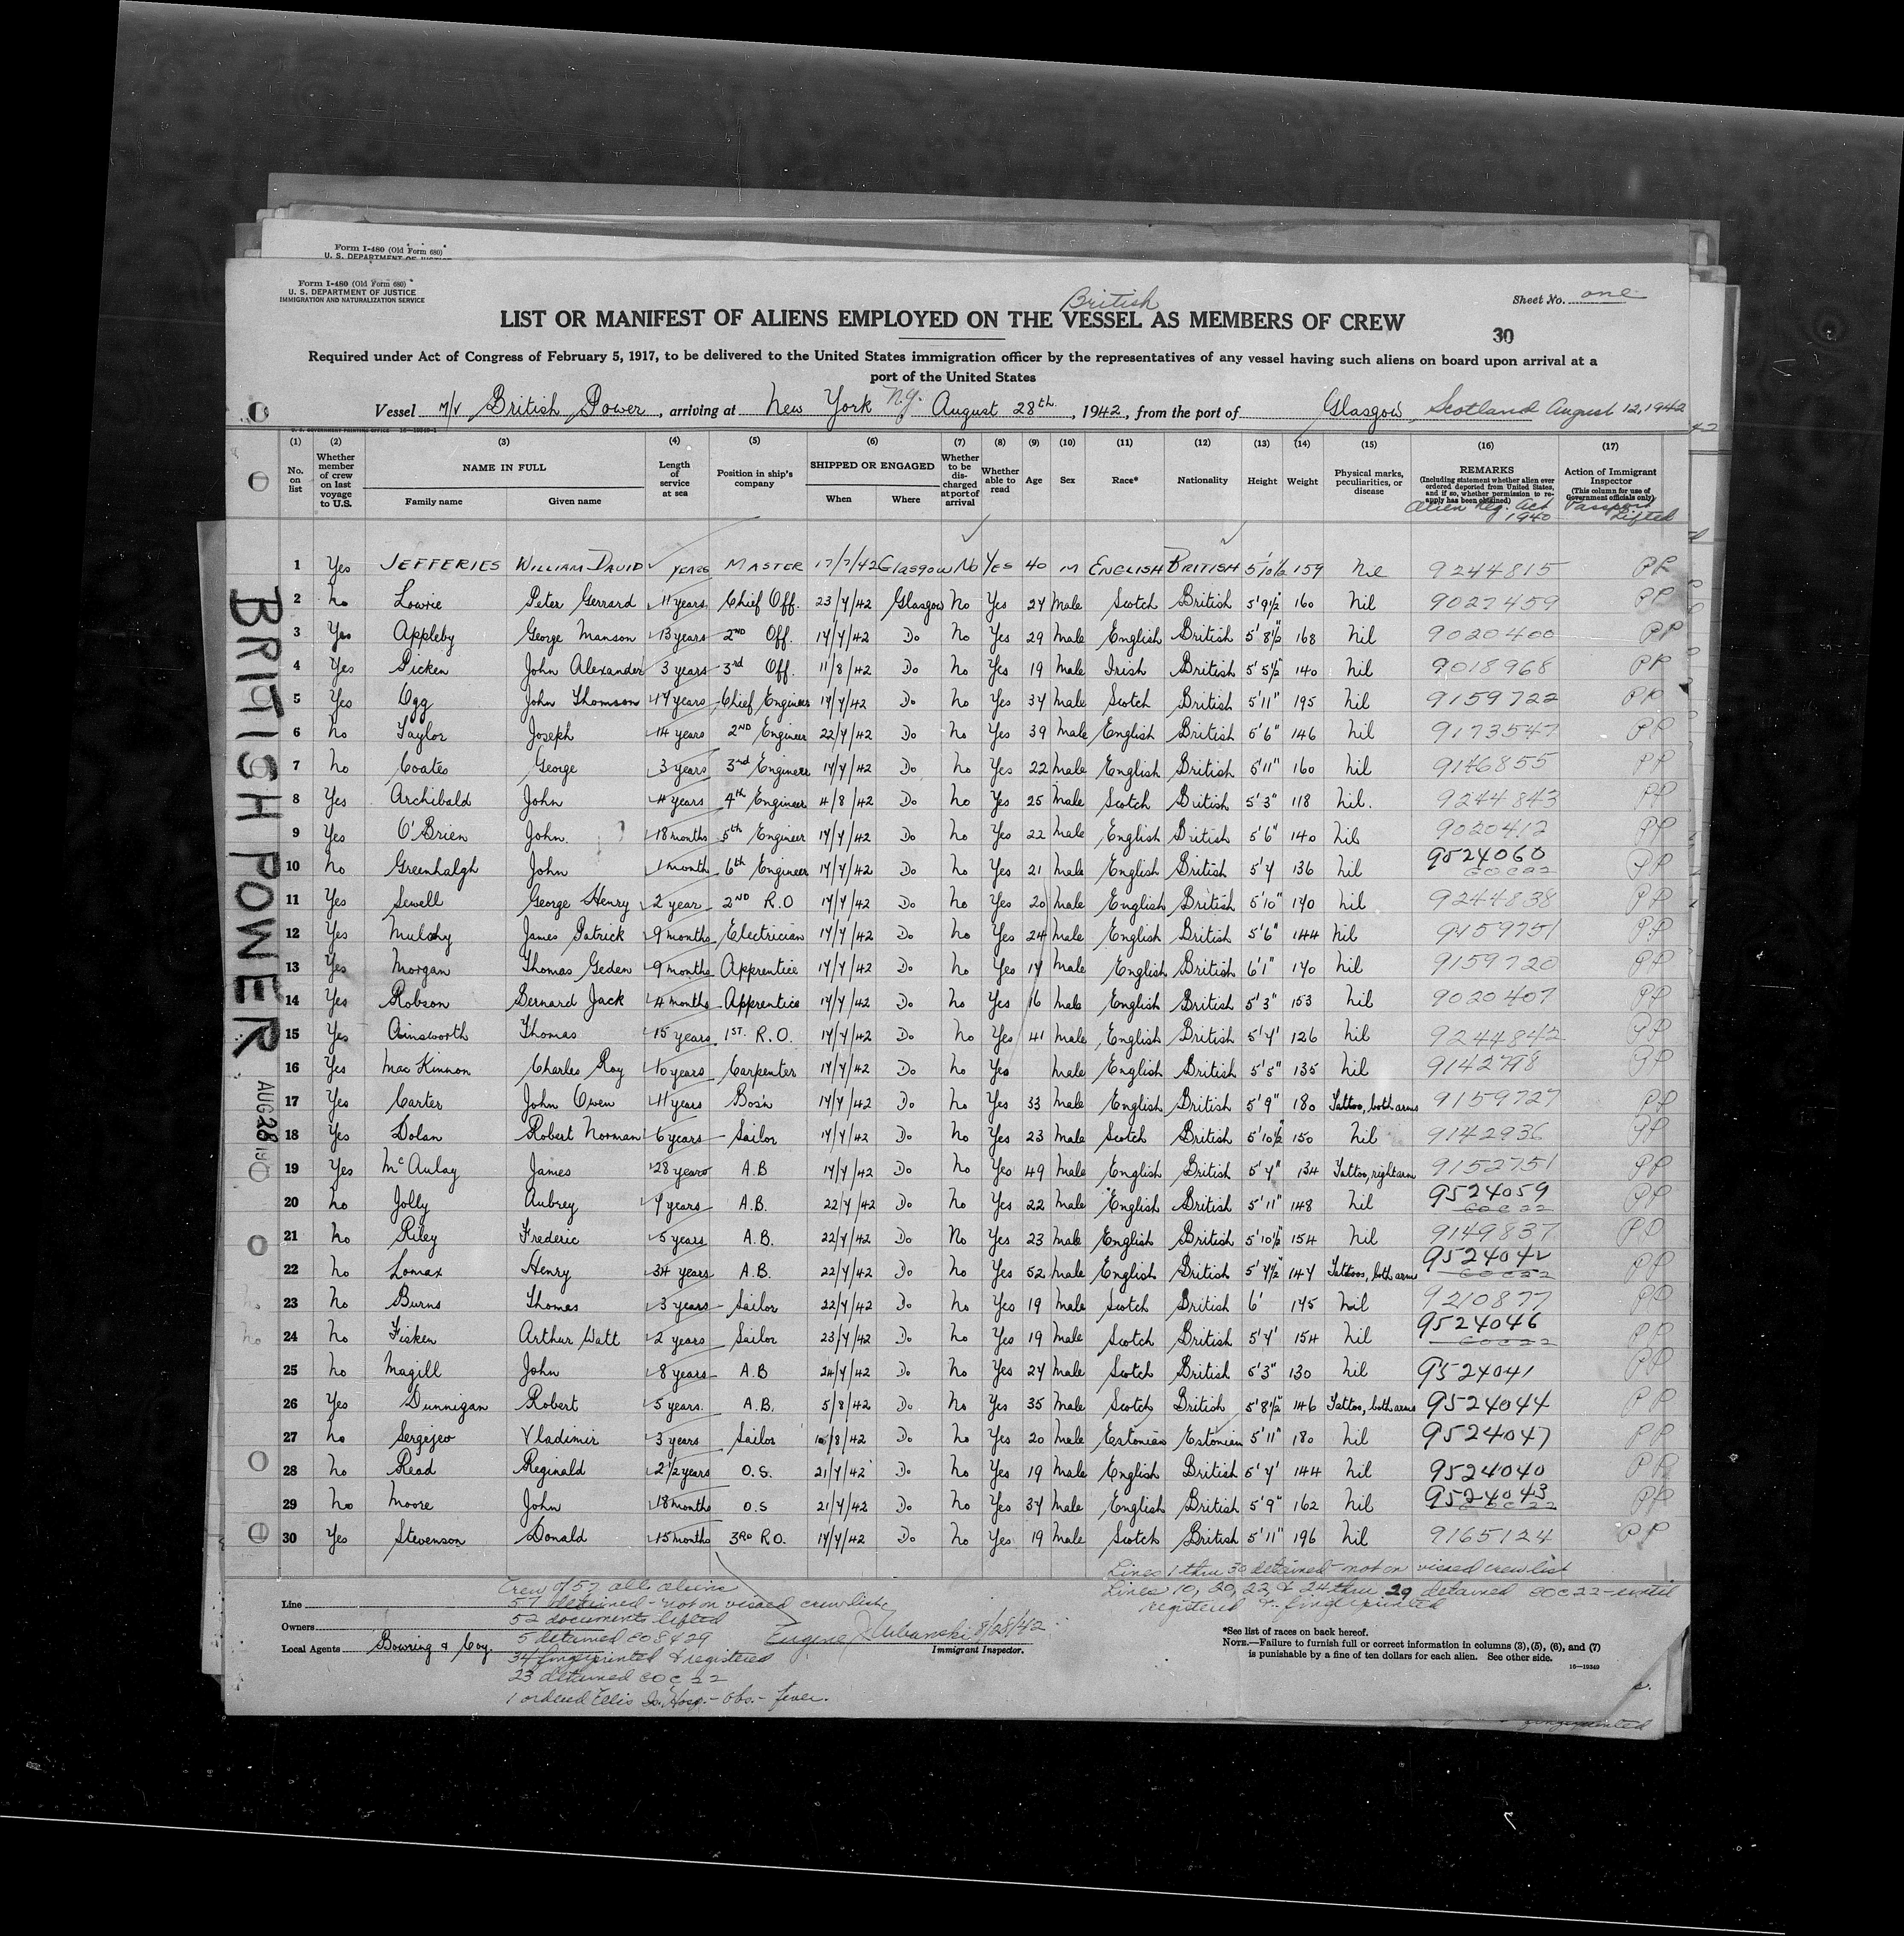 Form I-480 (Old Form 680)
U. S. DEPARTMENT OF JUSTICE
Form I-480 (Old Form 680)
U. S. DEPARTMENT OF JUSTICE
IMMIGRATION AND NATURALIZATION SERVICE
Sheet No. one
British
LIST OR MANIFEST OF ALIENS EMPLOYED ON THE VESSEL AS MEMBERS OF CREW
30
Required under Act of Congress of February 5, 1917, to be delivered to the United States immigration officer by the representatives of any vessel having such aliens on board upon arrival at a
port of the United States
Vessel M/V British Power, arriving at New York N.Y. August 28th, 1942, from the port of Glasgow, Scotland August 12, 1942
(1) (2) (3) (4) (5) (6) (7) (8) (9) (10) (11) (12) (13) (14) (15) (16) (17)
No. on list | Whether member of crew on last voyage to U.S. | NAME IN FULL Family name Given name | Length of service at sea | Position in ship's company | SHIPPED OR ENGAGED When Where | Whether to be discharged at port of arrival | Whether able to read | Age | Sex | Race* | Nationality | Height | Weight | Physical marks, peculiarities, or disease | REMARKS (Including statement whether alien ever ordered deported from United States, and if so, whether permission to reapply has been obtained) Alien Reg. Act 1940 | Action of Immigrant Inspector (This column for use of Government officials only) Passport Lifted
1 Yes JEFFERIES WILLIAM DAVID years MASTER 17/7/42 Glasgow No YES 40 M ENGLISH BRITISH 5'10½ 159 Nil 9244815 PP
2 No Lowrie Peter Gerrard 11 years Chief Off. 23/7/42 Glasgow No Yes 27 Male Scotch British 5'9½" 160 Nil 9027459 PP
3 Yes Appleby George Manson 13 years 2ND Off. 17/7/42 Do No Yes 29 Male English British 5'8½" 168 Nil 9020400 PP
4 Yes Picken John Alexander 3 years 3rd Off. 11/8/42 Do No Yes 19 Male Irish British 5'5½" 140 Nil 9018968 PP
5 Yes Ogg John Thomson 17 years Chief Engineer 17/7/42 Do No Yes 37 Male Scotch British 5'11" 195 Nil 9159722 PP
6 No Taylor Joseph 14 years 2ND Engineer 22/7/42 Do No Yes 39 Male English British 5'6" 146 Nil 9173547 PP
7 No Coates George 3 years 3rd Engineer 17/7/42 Do No Yes 22 Male English British 5'11" 160 Nil 9146855 PP
8 Yes Archibald John 4 years 4th Engineer 4/8/42 Do No Yes 25 Male Scotch British 5'3" 118 Nil. 9244843 PP
9 Yes O'Brien John. 18 months 5th Engineer 17/7/42 Do No Yes 22 Male English British 5'6" 140 Nil 9020412 PP
10 No Greenhalgh John 1 month 6th Engineer 17/7/42 Do No Yes 21 Male English British 5'7 136 Nil 9524060 PP
11 Yes Sewell George Henry 2 year 2ND R.O 17/7/42 Do No Yes 20 Male English British 5'10" 170 Nil 9244838 PP
12 Yes James Patrick 9 months Electrician 17/7/42 Do No Yes 24 Male English British 5'6" 144 Nil 9159751 PP
13 Yes Morgan Thomas Geden 9 months Apprentice 17/7/42 Do No Yes 17 Male English British 6'1" 170 Nil 9159720 PP
14 Yes Robson Bernard Jack 4 months Apprentice 17/7/42 Do No Yes 16 Male English British 5'3" 153 Nil 9020407 PP
15 Yes Ainsworth Thomas 15 years 1ST. R.O. 17/7/42 Do No Yes 41 Male English British 5'7' 126 Nil 9244842 PP
16 Yes MacKinnon Charles Roy 10 years Carpenter 17/7/42 Do No Yes Male English British 5'5" 135 Nil 9142798 PP
17 Yes Carter John Owen 11 years Bosn 17/7/42 Do No Yes 33 Male English British 5'9" 180 Tattoo, both arms 9159727 PP
18 Yes Dolan Robert Norman 6 years Sailor 17/7/42 Do No Yes 23 Male Scotch British 5'10½" 150 Nil 9142936 PP
19 Yes McAulay James 28 years A.B 17/7/42 Do No Yes 49 Male English British 5'7" 134 Tattoo, right arm 9152751 PP
20 No Jolly Aubrey 7 years A.B. 22/7/42 Do No Yes 22 Male English British 5'11" 148 Nil 9524059 PP
21 No Riley Frederic 5 years A.B. 22/7/42 Do No Yes 23 Male English British 5'10½" 154 Nil 9149837 PP
22 No Lomax Henry 34 years A.B. 22/7/42 Do No Yes 52 Male English British 5'7½" 147 Tattoos, both arms 9524042 PP
23 No Burns Thomas 3 years Sailor 22/7/42 Do No Yes 19 Male Scotch British 6' 175 Nil 9210877 PP
24 No Fisken Arthur Watt 2 years Sailor 23/7/42 Do No Yes 19 Male Scotch British 5'7' 154 Nil 9524046 PP
25 No Magill John 8 years A.B 24/7/42 Do No Yes 27 Male Scotch British 5'3" 130 Nil 9524041 PP
26 Yes Dunnigan Robert 5 years. A.B. 5/8/42 Do No Yes 35 Male Scotch British 5'8½" 146 Tattoo, both arms 9524044 PP
27 No Sergejev Vladimir 3 years Sailor 10/8/42 Do No Yes 20 Male Estonian Estonian 5'11" 180 Nil 9524047 PP
28 No Read Reginald 2½ years O.S. 21/7/42 Do No Yes 19 Male English British 5'7' 144 Nil 9524040 PP
29 No Moore John 18 months O.S 21/7/42 Do No Yes 37 Male English British 5'9" 162 Nil 9524043 PP
30 Yes Stevenson Donald 15 months 3RD R.O. 17/7/42 Do No Yes 19 Male Scotch British 5'11" 196 Nil 9165124 PP
BRITISH POWER
AUG 28 19
Lines 1 thru 30 detained - not on visaed crew list
Lines 10, 20, 22, & 24 thru 29 detained EOC 22 - until
registered & fingerprinted
Crew of 57 all aliens
Line
57 detained - not on visaed crew list
Owners
52 documents lifted
5 detained EO 8429
Local Agents Bowring & Coy.
34 fingerprinted & registered
23 detained EOC 22
1 ordered Ellis Is. Hosp. - obs. - fever.
Eugene J. 8/28/42
Immigrant Inspector.
*See list of races on back hereof.
NOTE.—Failure to furnish full or correct information in columns (3), (5), (6), and (7)
is punishable by a fine of ten dollars for each alien. See other side.
16—19349
fingerprinted